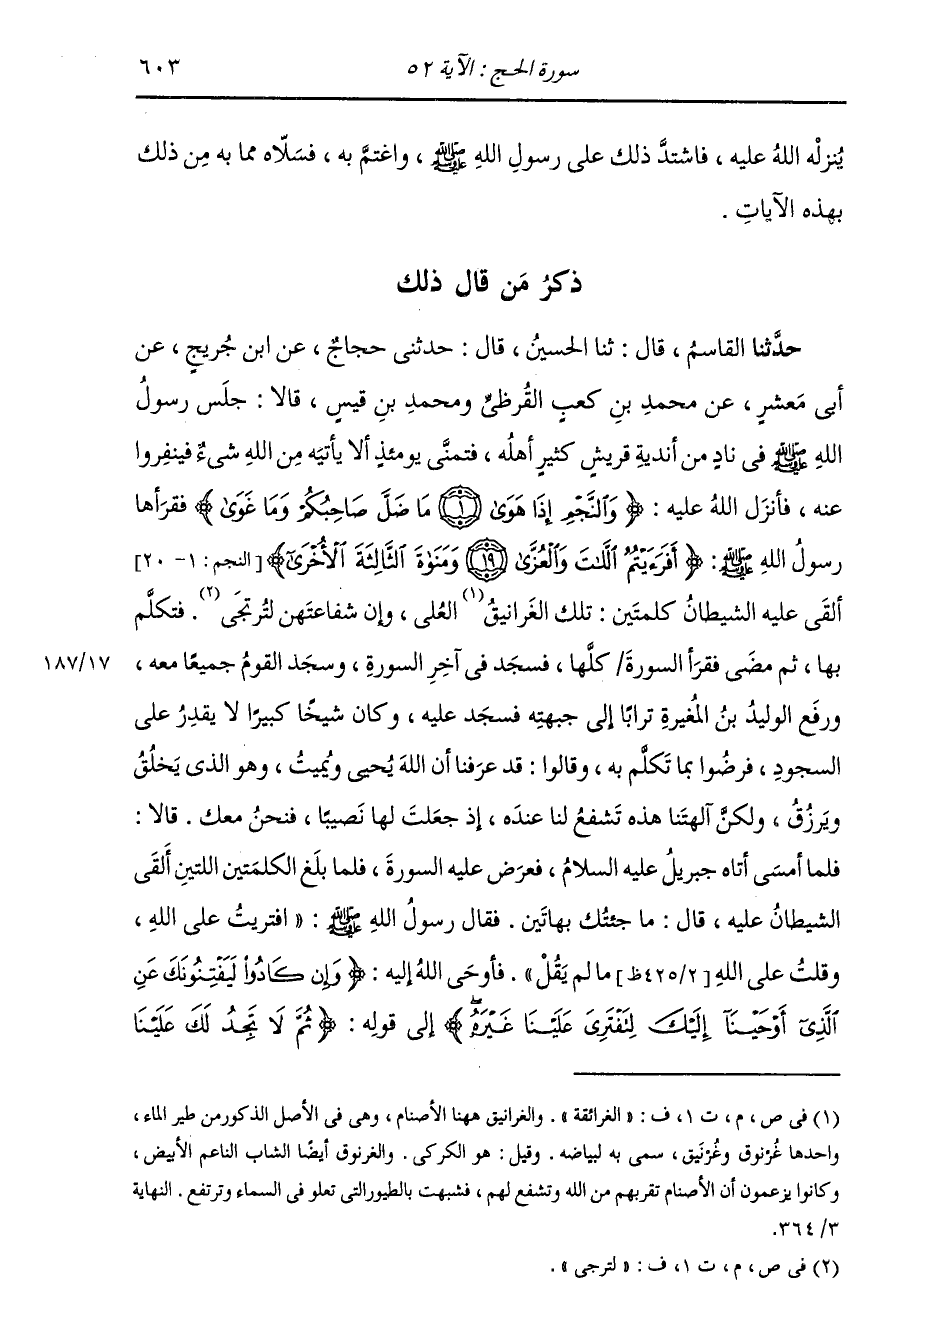 سورة الحج : الآية ٥٢ ٦٠٣
يُنزلْه اللهُ عليه ، فاشتدَّ ذلك على رسولِ اللهِ ﷺ ، واغتمَّ به ، فسَلّاه مما به مِن ذلك
بهذه الآياتِ .
ذكرُ مَن قال ذلك
حدَّثنا القاسمُ ، قال : ثنا الحسينُ ، قال : حدثنى حجاجٌ ، عن ابن جُريجٍ ، عن
أبى مَعشرٍ ، عن محمدِ بنِ كعبٍ القُرظىِّ ومحمدِ بنِ قيسٍ ، قالا : جلَس رسولُ
اللهِ ﷺ فى نادٍ من أنديةِ قريشٍ كثيرٍ أهلُه ، فتمنَّى يومئذٍ ألا يأتيَه مِن اللهِ شىءٌ فينفِروا
عنه ، فأنزَل اللهُ عليه : ﴿ وَٱلنَّجْمِ إِذَا هَوَىٰ ۝١ مَا ضَلَّ صَاحِبُكُمْ وَمَا غَوَىٰ ﴾ فقرَأها
رسولُ اللهِ ﷺ : ﴿ أَفَرَءَيْتُمُ ٱللَّٰتَ وَٱلْعُزَّىٰ ۝١٩ وَمَنَوٰةَ ٱلثَّالِثَةَ ٱلْأُخْرَىٰٓ ﴾ [النجم : ١ - ٢٠]
ألقَى عليه الشيطانُ كلمتَين : تلك الغَرانيقُ(١) العُلى ، وإن شفاعتَهن لتُرتجَى(٢) . فتكلَّم
بها ، ثم مضَى فقرَأ السورةَ/ كلَّها ، فسجَد فى آخِرِ السورةِ ، وسجَد القومُ جميعًا معه ، ١٨٧/١٧
ورفَع الوليدُ بنُ المُغيرةِ ترابًا إلى جبهتِه فسجَد عليه ، وكان شيخًا كبيرًا لا يقدِرُ على
السجودِ ، فرضُوا بما تَكلَّم به ، وقالوا : قد عرَفنا أن اللهَ يُحيى ويُميتُ ، وهو الذى يَخلُقُ
ويَرزُقُ ، ولكنَّ آلهتَنا هذه تَشفعُ لنا عندَه ، إذ جعَلتَ لها نَصيبًا ، فنحنُ معك . قالا :
فلما أمسَى أتاه جبريلُ عليه السلامُ ، فعرَض عليه السورةَ ، فلما بلَغ الكلمَتين اللتينِ أَلقَى
الشيطانُ عليه ، قال : ما جئتُك بهاتَين . فقال رسولُ اللهِ ﷺ : « افتريتُ على اللهِ ،
وقلتُ على اللهِ [٤٢٥/٢ظ] ما لم يَقُلْ » . فأوحَى اللهُ إليه : ﴿ وَإِن كَادُواْ لَيَفْتِنُونَكَ عَنِ
ٱلَّذِىٓ أَوْحَيْنَآ إِلَيْكَ لِتَفْتَرِىَ عَلَيْنَا غَيْرَهُۥ ﴾ إلى قولِه : ﴿ ثُمَّ لَا تَجِدُ لَكَ عَلَيْنَا
(١) فى ص ، م ، ت ١، ف : « الغرائقة » . والغرانيق ههنا الأصنام ، وهى فى الأصل الذكور من طير الماء ،
واحدها غُرْنوق وغُرْنَيق ، سمى به لبياضه . وقيل : هو الكركى . والغرنوق أيضًا الشاب الناعم الأبيض ،
وكانوا يزعمون أن الأصنام تقربهم من الله وتشفع لهم ، فشبهت بالطيور التى تعلو فى السماء وترتفع . النهاية
٣/ ٣٦٤.
(٢) فى ص ، م ، ت ١، ف : « لترجى » .